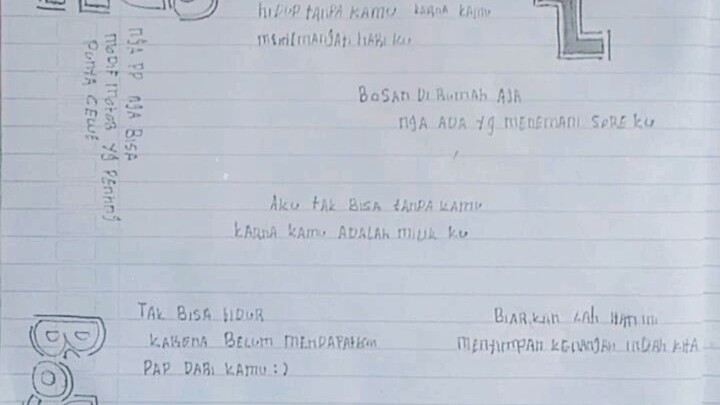 hidup tanpa kamu karna kamu
menemangati hari ku
nga pp nga bisa
modif motor yg penting
punya cewe
Bosan di rumah aja
nga ada yg menemani sore ku
Aku tak bisa tanpa kamu
karna kamu adalah milik ku
Tak bisa tidur
karena belum mendapatkan
pap dari kamu :)
Biarkan lah hati ini
menyimpan kenangan indah kita